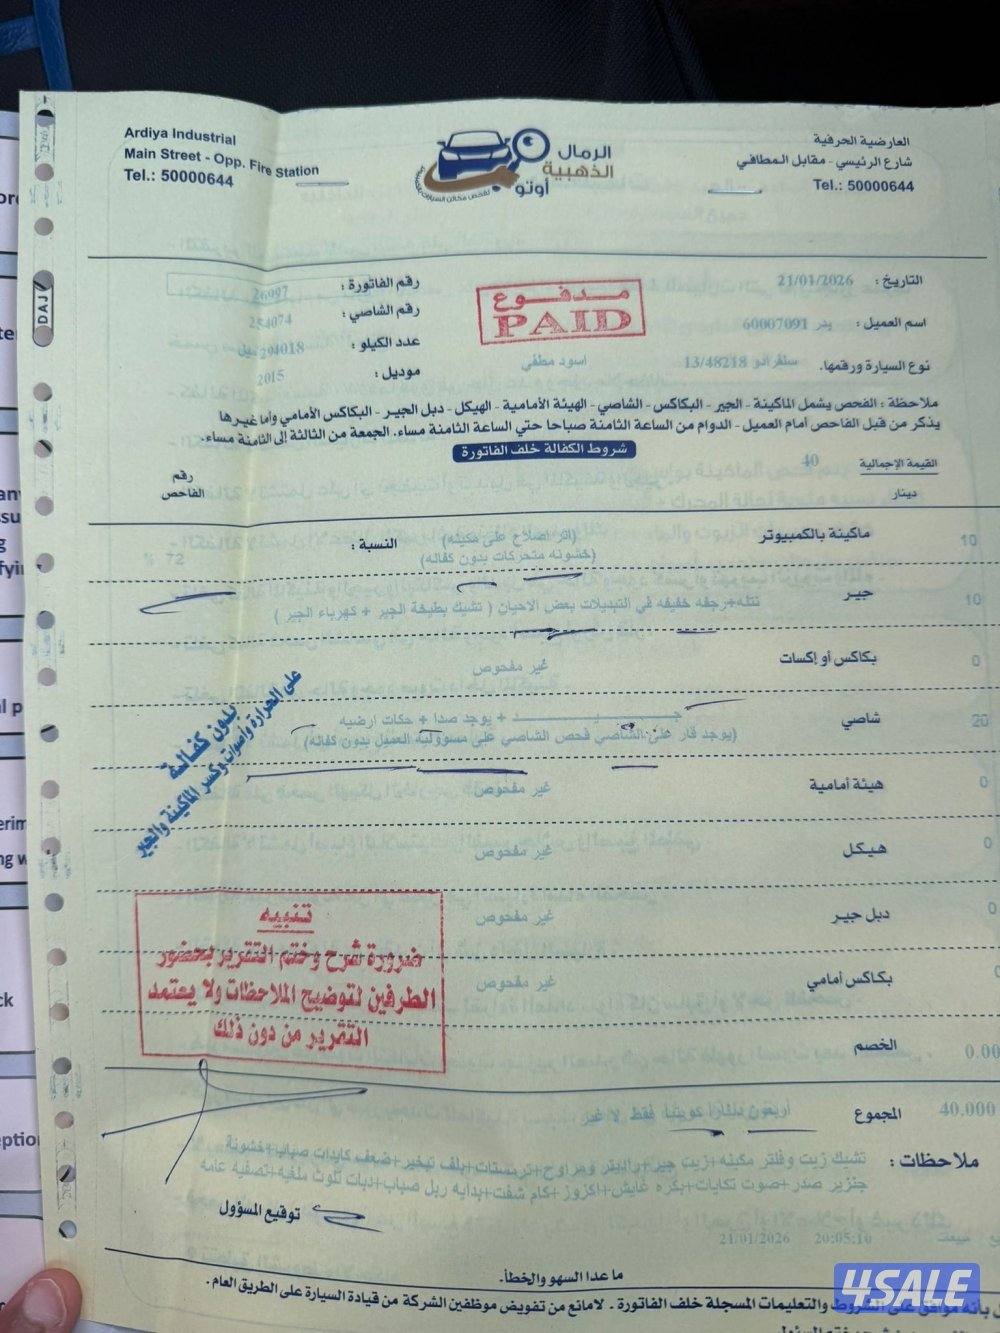 Ardiya Industrial
Main Street - Opp. Fire Station
Tel.: 50000644
الرمال
الذهبية
أوتو
العارضية الحرفية
شارع الرئيسي - مقابل المطافي
Tel.: 50000644
التاريخ : 21/01/2026
رقم الفاتورة : 26997
مدفوع
PAID
اسم العميل : بدر 60007091
رقم الشاصي : 254074
نوع السيارة ورقمها. سلفرادو 13/48218 اسود مطفي
عدد الكيلو : 294018 ميل
موديل : 2015
ملاحظة : الفحص يشمل الماكينة - الجير - البكاكس - الشاصي - الهيئة الأمامية - الهيكل - دبل الجير - البكاكس الأمامي وأما غيرها
يذكر من قبل الفاحص أمام العميل - الدوام من الساعة الثامنة صباحا حتي الساعة الثامنة مساء، الجمعة من الثالثة إلى الثامنة مساء.
شروط الكفالة خلف الفاتورة
القيمة الإجمالية 40
دينار
رقم
الفاحص
10 ماكينة بالكمبيوتر (اثر اصلاح على مكينه) النسبة : 72 %
(خشونه متحركات بدون كفاله)
10 جير نتله+رجفه خفيفه في التبديلات بعض الاحيان ( تشيك بطيخة الجير + كهرباء الجير )
0 بكاكس أو إكسات غير مفحوص
20 شاصي جـيـد + يوجد صدا + حكات ارضيه
(يوجد قار على الشاصي فحص الشاصي على مسؤولية العميل بدون كفاله)
0 هيئة أمامية غير مفحوص
0 هيكل غير مفحوص
0 دبل جير غير مفحوص
بكاكس أمامي غير مفحوص
بدون كفالة
على الحرارة وأصوات وكسر الماكينة والجير
تنبيه
ضرورة شرح وختم التقرير بحضور
الطرفين لتوضيح الملاحظات ولا يعتمد
التقرير من دون ذلك
الخصم 0.00
المجموع 40.000 أربعون دينارا كويتيا فقط لا غير
ملاحظات : تشيك زيت وفلتر مكينه+زيت جير+راديتر ومراوح+ترمستات+بلف تبخير+ضعف كايدات صباب+خشونة
جنزير صدر+صوت تكايات+بكره غايش+اكزوز+كام شفت+بدايه ربل صباب+دبات تلوث ملغيه+تصفيه عامه
توقيع المسؤول
21/01/2026 20:05:10
ما عدا السهو والخطأ.
بأنه موافق على الشروط والتعليمات المسجلة خلف الفاتورة . لامانع من تفويض موظفين الشركة من قيادة السيارة على الطريق العام .
DAJ
4SALE